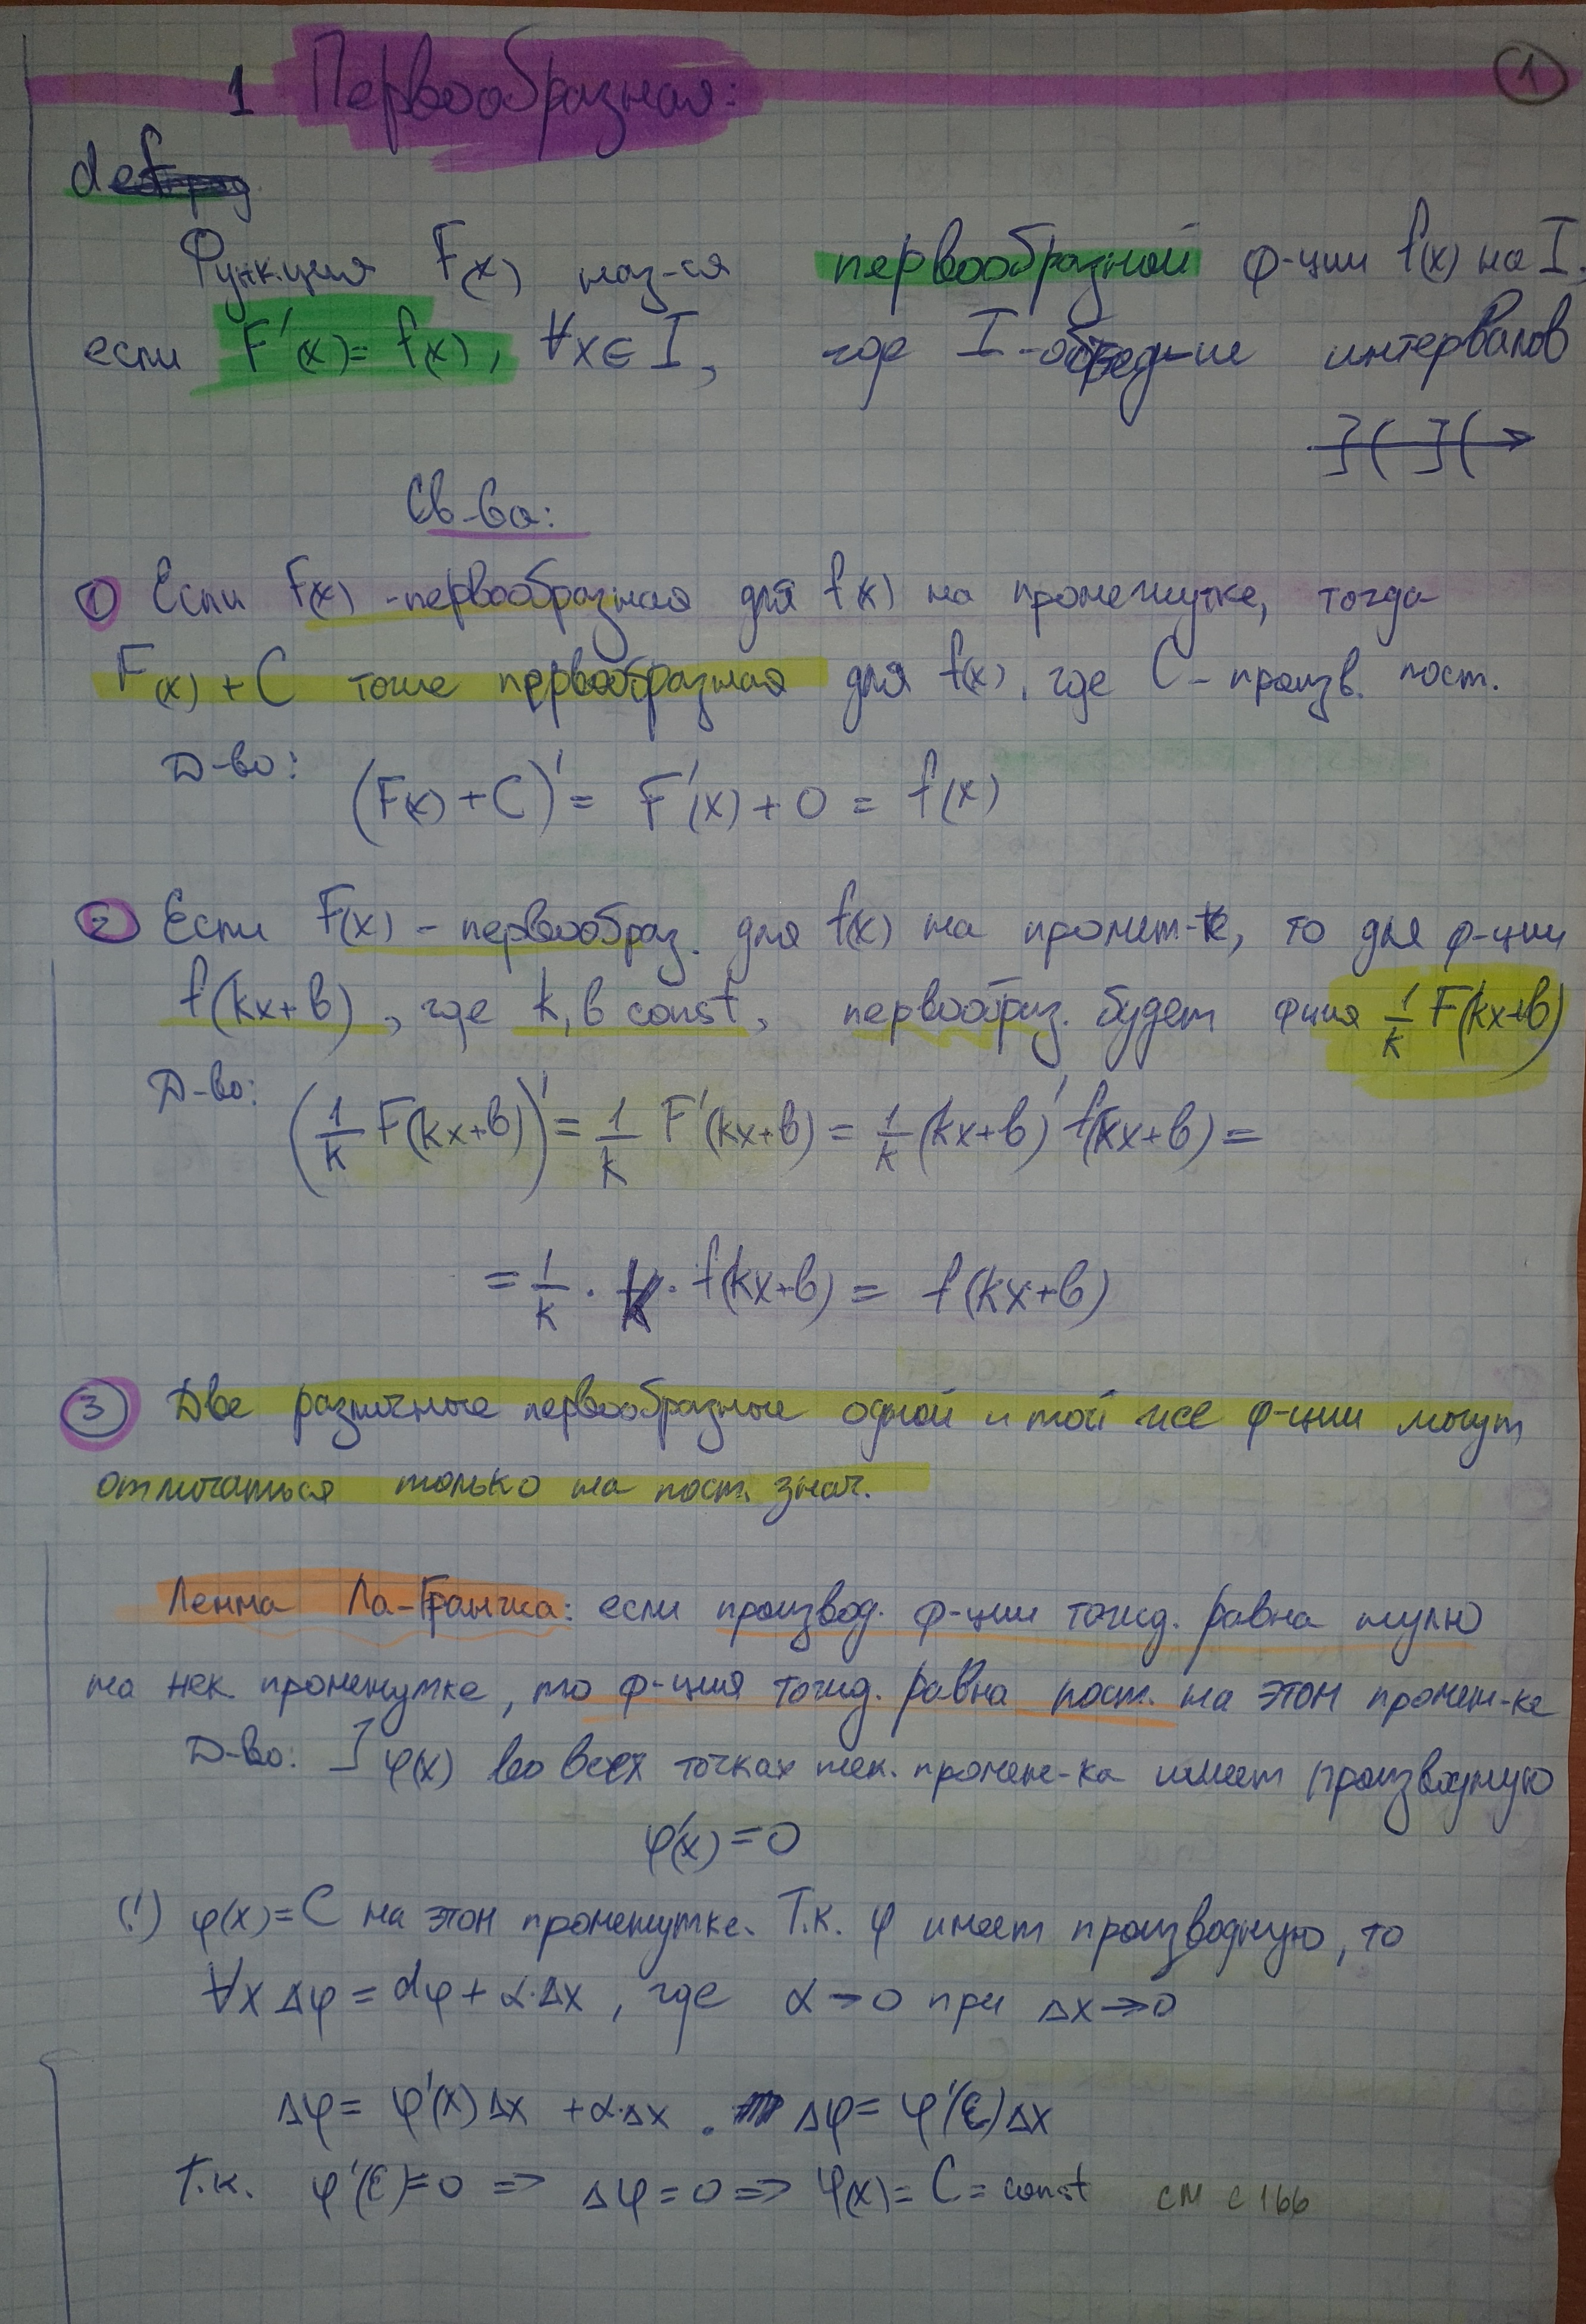 1
1 Первообразная:
def
Функция F(x) наз-ся первообразной ф-ции f(x) на I,
если F'(x) = f(x), ∀x∈I, где I - интервалов
](  ](
Св-ва:
① Если F(x) - первообразная для f(x) на промежутке, тогда
F(x) + C тоже первообразная для f(x), где C - произв. пост.
Д-во: (F(x) + C)' = F'(x) + 0 = f(x)
② Если F(x) - первообраз. для f(x) на пролет-ке, то для ф-ции
f(kx+b), где k, b const, первообраз. будет фция 1/k F(kx+b)
Д-во: (1/k F(kx+b))' = 1/k F'(kx+b) = 1/k (kx+b)' f(kx+b) =
= 1/k · k · f(kx+b) = f(kx+b)
③ Две различные первообразные одной и той же ф-ции могут
отличаться только на пост. знач.
Лемма Ла-Гранжа: если производ. ф-ции тожд. равна нулю
на нек. промежутке, то ф-ция тожд. равна пост. на этом промеж-ке
Д-во: ] φ(x) во всех точках нек. промеж-ка имеет производную
φ'(x) = 0
(!) φ(x) = C на этом промежутке. Т.к. φ имеет производную, то
∀x Δφ = dφ + α·Δx, где α → 0 при Δx → 0
Δφ = φ'(x)Δx + α·Δx. Δφ = φ'(ε)Δx
Т.к. φ'(ε) = 0 => Δφ = 0 => φ(x) = C = const см с 166